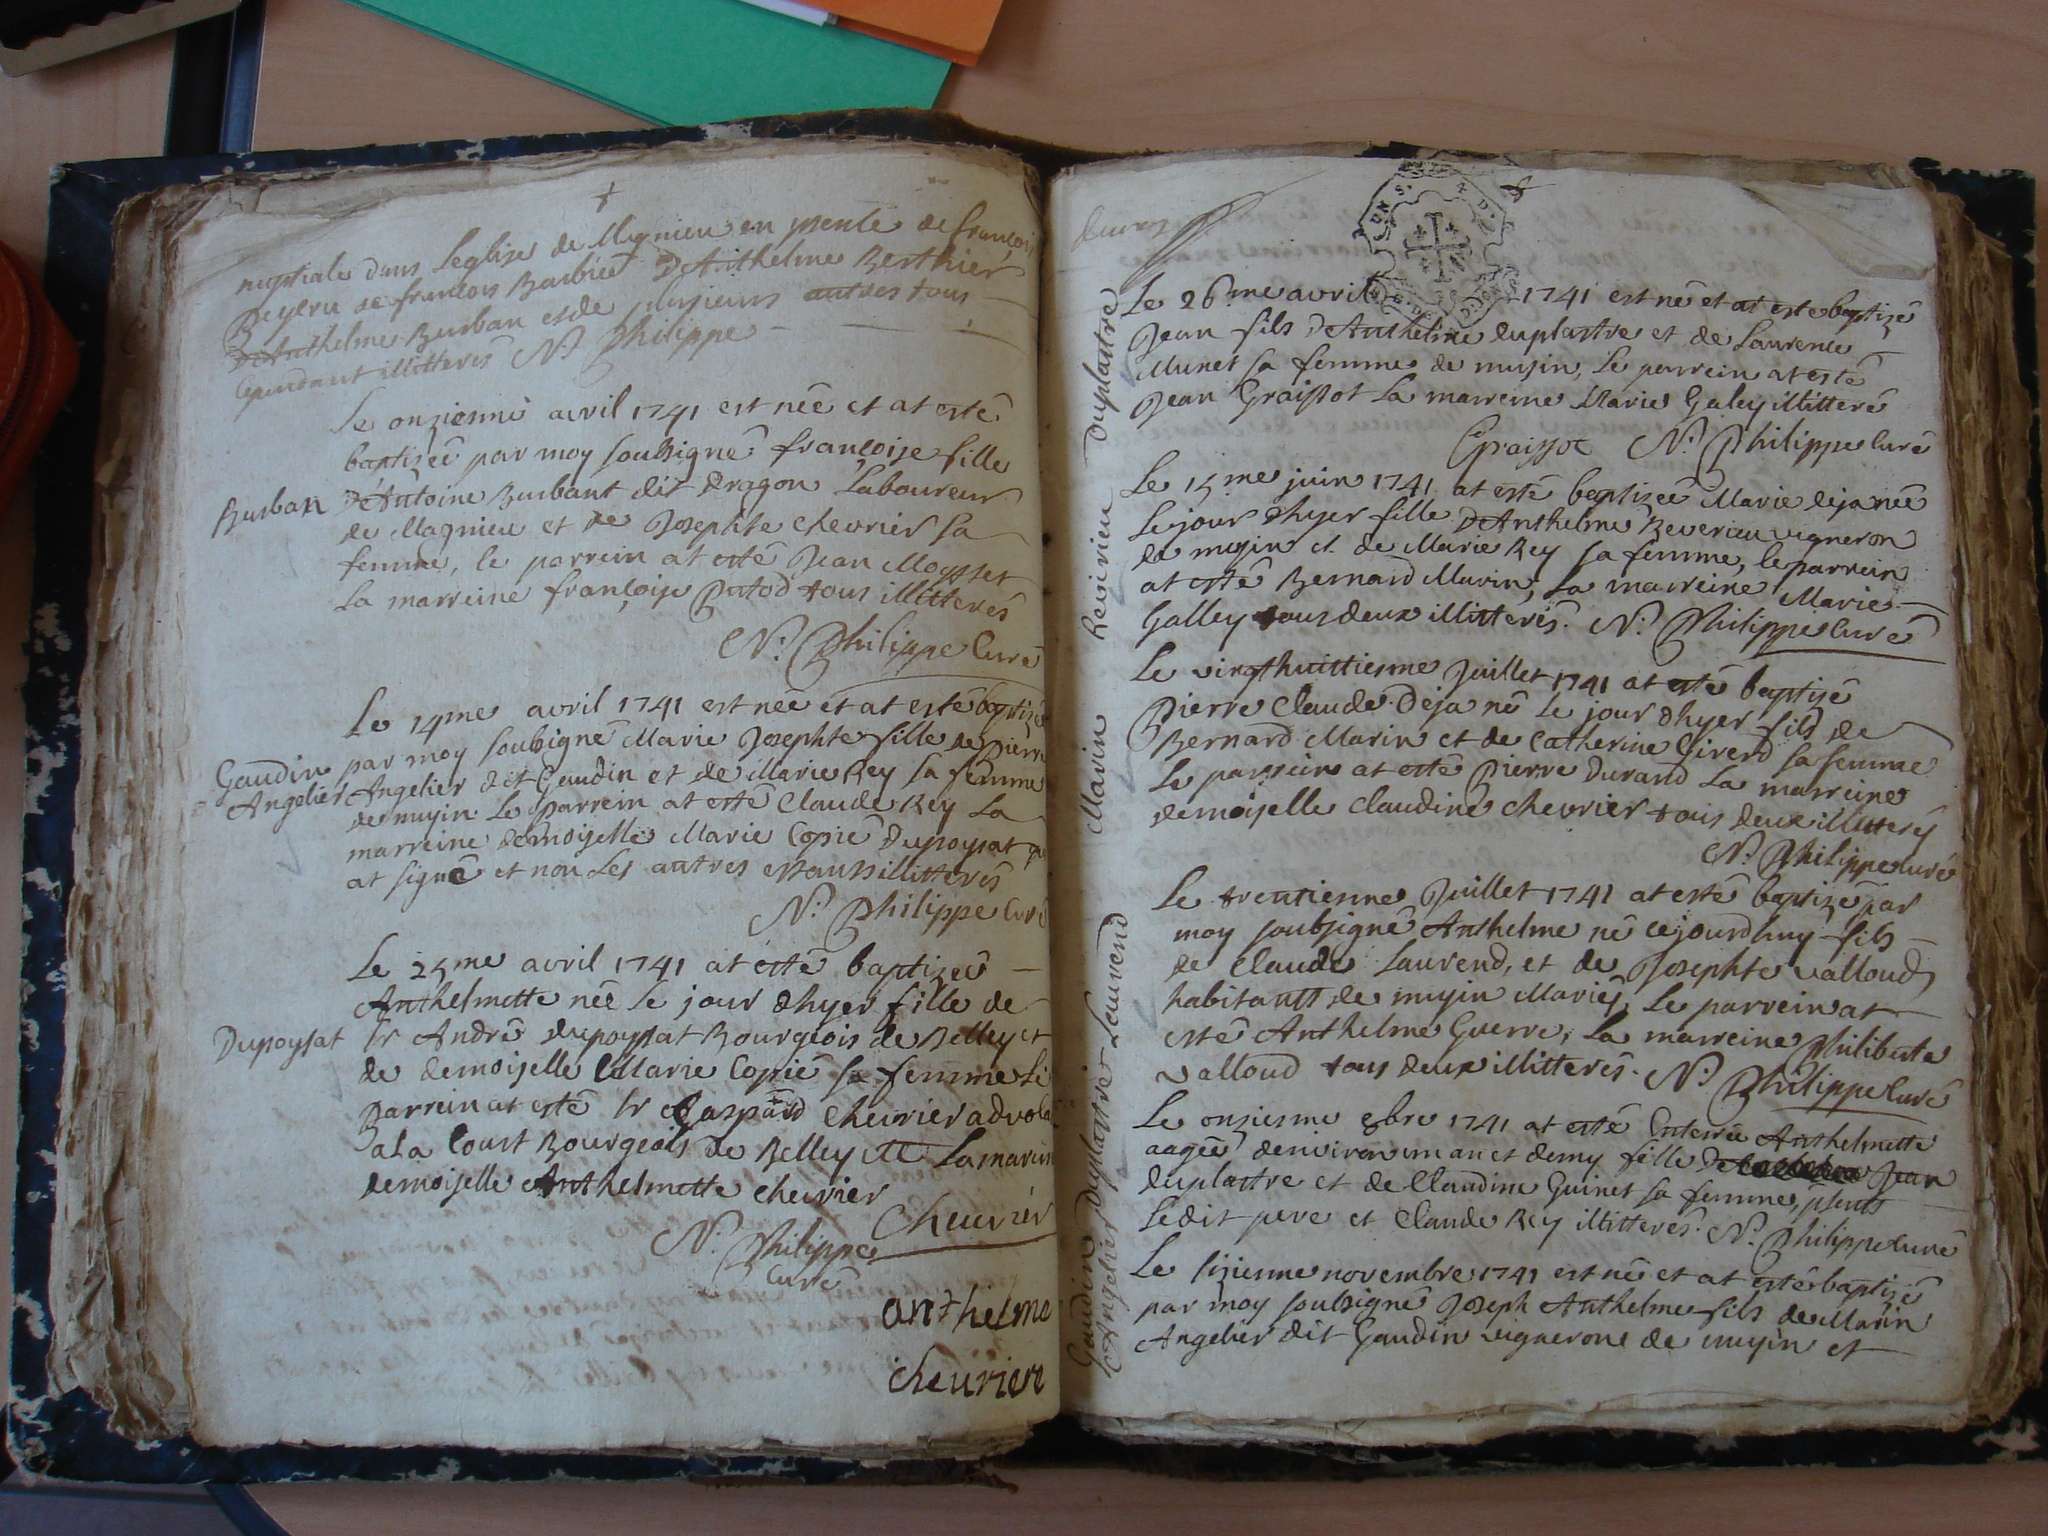 nuptiale dans Leglise de Magnieu en psence de françois
Peyeru de françois Barbier D'Anthelme Berthier
D'Anthelme Burban et de plusieurs autres tous
Cependant illitterés N. Philippe
Le onzienne avril 1741 est née et at esté
baptizée par moy soubsigné françoise fille
Burban
D'Antoine Burbant dit Dragon Laboureur
de Magnieu et de Josephte chevrier sa
femme, le parrein at esté Jean Moysset
La marreine françoise Putod tous illitterés
N. Philippe Curé
Le 14me avril 1741 est née et at esté baptizé
par moy soubsigné Marie Josephte fille de Pierre
Gaudin
Angelier
Angelier dit Gaudin et de Marie Rey sa femme
de musin Le parrein at esté Claude Rey La
marreine demoiselle Marie Copié Dupoysat qui
at signé et non Les autres estants illitterés
N. Philippe Curé
Le 25me avril 1741 at esté baptizeé
Anthelmette neé le jour d'hyer fille de
Dupoysat
Sr André dupoysat Bourgeois de Belley et
de demoiselle Marie Copié sa femme Le
parrein at esté Sr Gaspard chevrier advocat
a La Court Bourgeois de Belley La mareine
demoiselle Anthelmette chevrier
N. Philippe
Curé
Cheurier
anthelme
cheuriere
Duplastre
Le 26me avril 1741 est né et at esté baptizé
Jean fils D'Anthelme duplastre et de Laurence
Munet sa femme de musin, Le parrein at esté
Jean Graissot La marreine Marie Galey illitteré
Graissot N. Philippe Curé
Reverieu
Le 15me juin 1741 at esté baptizeé Marie deja neé
Le jour d'hyer fille D'Anthelme Reverieu vigneron
de musin et de Marie Rey sa femme, le parrein
at esté Bernard Marin, La marreine Marie
Galley tous deux illitterés. N. Philippe Curé
Marin
Le vingthuittienne Juillet 1741 at esté baptizé
Pierre Claude Deja né Le jour d'hyer fils de
Bernard Marin et de Catherine Girerd sa femme
Le parrein at esté Pierre Durand La marreine
demoiselle Claudine chevrier tous deux illitterés
N. Philippe Curé
Laurend
Le trentienne Juillet 1741 at esté baptizé par
moy soubsigné Anthelme né cejourdhuy fils
de Claude Laurend, et de Josephte valloud
habitants de musin Mariés Le parrein at
esté Anthelme Guerre, La marreine Philiberte
valloud tous deux illitterés. N. Philippe Curé
Duplastre
Le onziesme 9bre 1741 at esté Enterrée Anthelmette
aageé denviron un an et demy fille de Jean
duplastre et de Claudine Guinet sa femme, psents
Ledit pere et Claude Rey illitterés. N. Philippe Curé
Gaudin
Angelier
Le sizienne novembre 1741 est né et at esté baptizé
par moy soubsigné Joseph Anthelme fils de Marin
Angelier dit Gaudin vignerone de musin et